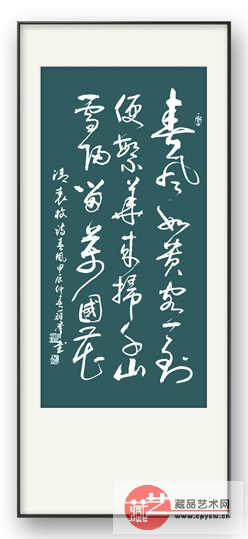 春风如贵客一到
便繁华来扫千山
雪归留万国花
清袁枚诗春风甲辰仲春
藏艺
藏品艺术网
www.cpysw.cn